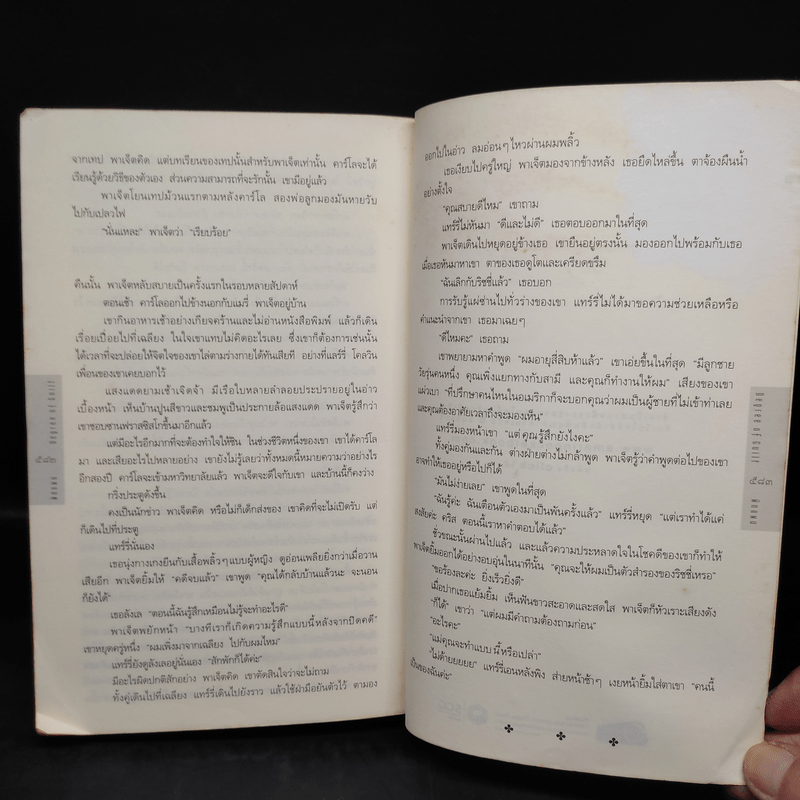 จากเทป พาเจ็ตคิด แต่บทเรียนของเทปนั้นสำหรับพาเจ็ตเท่านั้น คาร์โลจะได้
เรียนรู้ด้วยวิธีของตัวเอง ส่วนความสามารถที่จะรักนั้น เขามีอยู่แล้ว
พาเจ็ตโยนเทปม้วนแรกตามหลังคาร์โล สองพ่อลูกมองมันหายวับ
ไปกับเปลวไฟ
“นั่นแหละ” พาเจ็ตว่า “เรียบร้อย”
คืนนั้น พาเจ็ตหลับสบายเป็นครั้งแรกในรอบหลายสัปดาห์
ตอนเช้า คาร์โลออกไปข้างนอกกับแมรี่ พาเจ็ตอยู่บ้าน
เขากินอาหารเช้าอย่างเกียจคร้านและไม่อ่านหนังสือพิมพ์ แล้วก็เดิน
เรื่อยเปื่อยไปที่เฉลียง ในใจเขาแทบไม่คิดอะไรเลย ซึ่งเขาก็ต้องการเช่นนั้น
ได้เวลาที่จะปล่อยให้จิตใจของเขาไล่ตามร่างกายได้ทันเสียที อย่างที่แลร์รี่ โคลวิน
เพื่อนของเขาเคยบอกไว้
แสงแดดยามเช้าเจิดจ้า มีเรือใบหลายลำลอยประปรายอยู่ในอ่าว
เบื้องหน้า เห็นบ้านปูนสีขาวและชมพูเป็นประกายล้อแสงแดด พาเจ็ตรู้สึกว่า
เขาชอบซานฟรานซิสโกขึ้นมาอีกแล้ว
แต่มีอะไรอีกมากที่จะต้องทำใจให้ชิน ในช่วงชีวิตหนึ่งของเขา เขาได้คาร์โล
มา และเสียอะไรไปหลายอย่าง เขายังไม่รู้เลยว่าทั้งหมดนี้หมายความว่าอย่างไร
อีกสองปี คาร์โลจะเข้ามหาวิทยาลัยแล้ว พาเจ็ตจะดีใจกับเขา และบ้านนี้ก็คงว่าง
กริ่งประตูดังขึ้น
คงเป็นนักข่าว พาเจ็ตคิด หรือไม่ก็เด็กส่งของ เขาคิดที่จะไม่เปิดรับ แต่
ก็เดินไปที่ประตู
แทร์รี่นั่นเอง
เธอนุ่งกางเกงยีนกับเสื้อพลิ้วๆ แบบผู้หญิง ดูอ่อนเพลียยิ่งกว่าเมื่อวาน
เสียอีก พาเจ็ตยิ้มให้ “คดีจบแล้ว” เขาพูด “คุณได้กลับบ้านแล้วนะ จะนอน
ก็ยังได้”
เธอลังเล “ตอนนี้ฉันรู้สึกเหมือนไม่รู้จะทำอะไรดี”
พาเจ็ตพยักหน้า “บางทีเราก็เกิดความรู้สึกแบบนี้หลังจากปิดคดี”
เขาหยุดครู่หนึ่ง “ผมเพิ่งมาจากเฉลียง ไปกับผมไหม”
แทร์รี่ยังดูลังเลอยู่นั่นเอง “สักพักก็ได้ค่ะ”
มีอะไรผิดปกติสักอย่าง พาเจ็ตคิด เขาตัดสินใจว่าจะไม่ถาม
ทั้งคู่เดินไปที่เฉลียง แทร์รี่เดินไปยังราว แล้วใช้ฝ่ามือยันตัวไว้ ตามอง
๕๘๒
ออกไปในอ่าว ลมอ่อนๆ ไหวผ่านผมพลิ้ว
เธอเงียบไปครู่ใหญ่ พาเจ็ตมองจากข้างหลัง เธอยืดไหล่ขึ้น ตาจ้องผืนน้ำ
อย่างตั้งใจ
“คุณสบายดีไหม” เขาถาม
แทร์รี่ไม่หันมา “ดีและไม่ดี” เธอตอบออกมาในที่สุด
พาเจ็ตเดินไปหยุดอยู่ข้างเธอ เขายืนอยู่ตรงนั้น มองออกไปพร้อมกับเธอ
เมื่อเธอหันมาหาเขา ตาของเธอดูโตและเครียดขรึม
“ฉันเลิกกับริชชี่แล้ว” เธอบอก
การรับรู้แผ่ซ่านไปทั่วร่างของเขา แทร์รี่ไม่ได้มาขอความช่วยเหลือหรือ
คำแนะนำจากเขา เธอมาเฉยๆ
“ดีไหมคะ” เธอถาม
เขาพยายามหาคำพูด “ผมอายุสี่สิบห้าแล้ว” เขาเอ่ยขึ้นในที่สุด “มีลูกชาย
วัยรุ่นคนหนึ่ง คุณเพิ่งแยกทางกับสามี และคุณก็ทำงานให้ผม” เสียงของเขา
แผ่วเบา “ที่ปรึกษาคนไหนในอเมริกาก็จะบอกคุณว่าผมเป็นผู้ชายที่ไม่เข้าท่าเลย
และคุณต้องอาศัยเวลาถึงจะมองเห็น”
แทร์รี่มองหน้าเขา “แต่ คุณรู้สึกยังไงคะ”
ทั้งคู่มองกันและกัน ต่างฝ่ายต่างไม่กล้าพูด พาเจ็ตรู้ว่าคำพูดต่อไปของเขา
อาจทำให้เธออยู่หรือไปก็ได้
“มันไม่ง่ายเลย” เขาพูดในที่สุด
“ฉันรู้ค่ะ ฉันเตือนตัวเองมาเป็นพันครั้งแล้ว” แทร์รี่หยุด “แต่เราทำได้แค่
สงสัยค่ะ คริส ตอนนี้เราหาคำตอบได้แล้ว”
ชั่วขณะนั้นผ่านไปแล้ว และแล้วความประหลาดใจในโชคดีของเขาก็ทำให้
พาเจ็ตยิ้มออกได้อย่างอบอุ่นในนาทีนั้น “คุณจะให้ผมเป็นตัวสำรองของริชชี่เหรอ”
“ขอร้องละค่ะ ยิ่งเร็วยิ่งดี”
เมื่อปากเธอแย้มยิ้ม เห็นฟันขาวสะอาดและสดใส พาเจ็ตก็หัวเราะเสียงดัง
“ก็ได้” เขาว่า “แต่ผมมีคำถามต้องถามก่อน”
“อะไรคะ”
“แม่คุณจะทำแบบ นี้หรือเปล่า”
“ไม่ด้ายยยยย” แทร์รี่เอนหลังพิง ส่ายหน้าช้าๆ เงยหน้ายิ้มใส่ตาเขา “คนนี้
เป็นของฉันค่ะ”
Degree of Guilt
๕๘๓